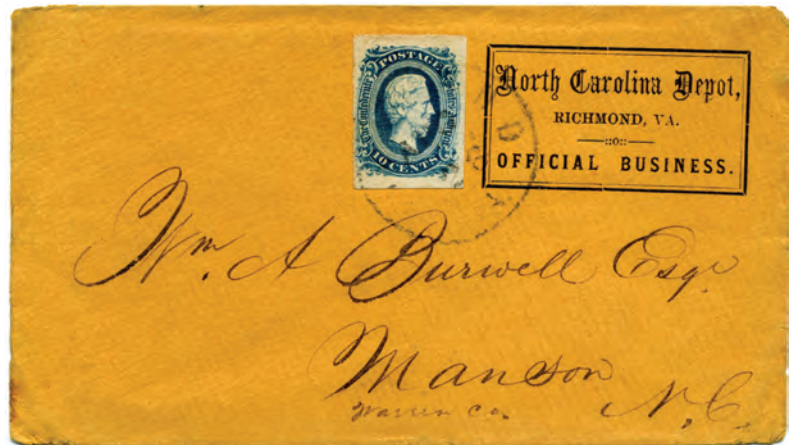 POSTAGE
The Confederate States of America
10 CENTS
North Carolina Depot,
RICHMOND, VA.
::0::
OFFICIAL BUSINESS.
Wm. A Burwell Esqr
Manson
Warren Co. N.C.